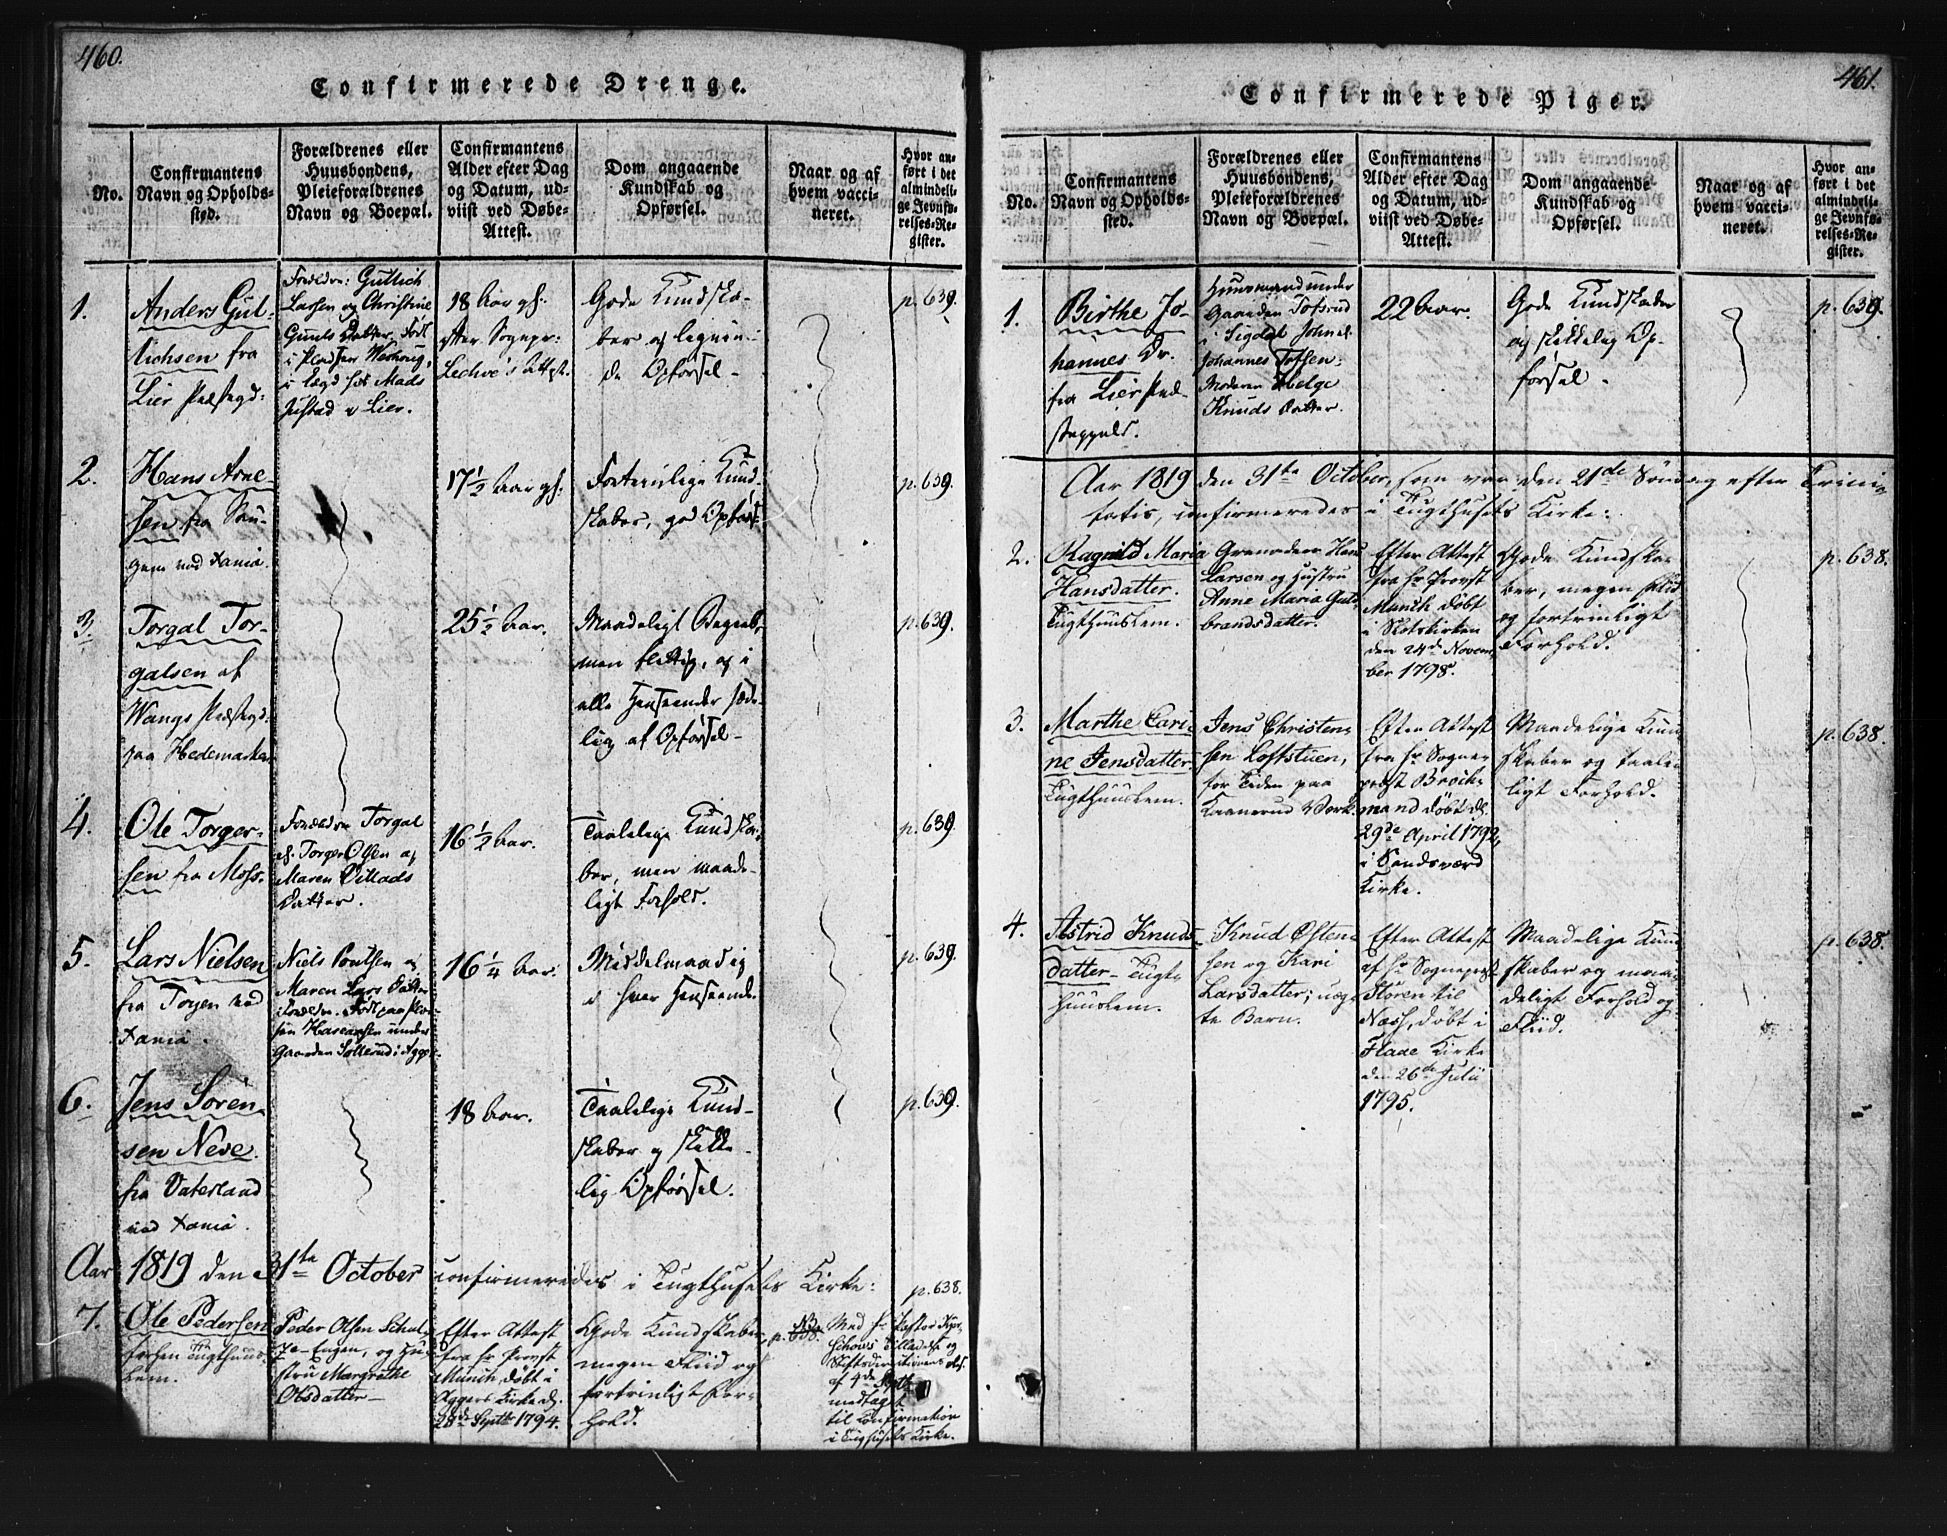 460.
Confirmerede Drenge.
No.
Confirmantens
Navn og Opholds-
sted.
Forældrenes eller
Huusbondens,
Pleieforældrenes
Navn og Boepæl.
Confirmantens
Alder efter Dag
og Datum, ud-
viist ved Døbe-
Attest.
Dom angaaende
Kundskab og
Opførsel.
Naar og af
hvem vacci-
neret.
Hvor an-
ført i det
almindeli-
ge Jevnfø-
relses-Re-
gister.
1.
Anders Gul-
lichsen fra
Lier Præstegd:
Forældre: Gullich
Larsen og Christine
Gunls Datter, født
i Pladsen
i Lægd hos Mads
Justad i Lier.
18 Aar gl:
efter Sognepr:
Attest.
Gode Kundska-
ber og
de Opførsel -
p. 639.
2.
Hans Arne-
sen fra
ved Xania
17½ Aar gl:
Fortrinlige Kund-
skaber, god Opførs
p. 639.
3.
Torgal Tor-
galsen af
Wangs Præstegd:
paa Hedemarken
25½ Aar.
Maadeligt Begreb,
men flittig, og i
alle Henseender sæde-
lig af Opførsel -
p. 639.
4.
Ole Torger-
sen fra Moss.
Forældre Torgal
el. Torger Olsen og
Maren Villads
Datter.
16½ Aar.
Taalelige Kundska-
ber, men maade-
ligt Forhold.
p. 639.
5.
Lars Nielsen
fra Toyen ved
Xania.
Niels Poulsen og
Maren Lars Datter
Forældre. Født paa Plad-
sen under
Gaarden Sollerud i Agger
16¼ Aar.
Middelmaadig
i hver Henseende.
p. 639.
6.
Jens Sören-
sen Neve.
fra Vaterland
ved Xania.
18 Aar.
Taalelige Kund-
skaber og skikke-
lig Opførsel.
p. 639.
Aar 1819 den 31te October confirmeredes i Tugthusets Kirke:
p. 638.
7.
Ole Pedersen
Tugthuus-
lem.
Peder Olsen Schul-
Engen, og Hu-
stru Margrethe
Olsdatter -
Efter Attest
fra Hr Provst
Munch, døbt i
Aggers Kirke d.
28de Septbr 1794.
Gode Kundskaber,
megen Fliid og
fortrinligt For-
hold.
p. 638.
NB.
Med Hr Pastor
Tilladelse og
Stiftsdirectionens
af 4de Septbr
modtaget
til Confirmation
i Tugthusets Kirke.
461.
Confirmerede Piger.
No.
Confirmantens
Navn og Opholds-
sted.
Forældrenes eller
Huusbondens,
Pleieforældrenes
Navn og Boepæl.
Confirmantens
Alder efter Dag
og Datum, ud-
viist ved Døbe-
Attest.
Dom angaaende
Kundskab og
Opførsel.
Naar og af
hvem vacci-
neret.
Hvor an-
ført i det
almindeli-
ge Jevnfø-
relses-Re-
gister.
1.
Birthe Jo-
hannes Dr.
fra Lier Præ-
stegjeld.
Huusmand under
Gaarden Tofsrud
i Sigdal
Johannes Tofsen.
Moderen Helge
Knuds Datter.
22 Aar.
Gode Kundskaber
og skikkelig Op-
førsel.
p. 639.
Aar 1819 den 31te October, som var den 21de Søndag efter Trini-
tatis, confirmeredes i Tugthusets Kirke:
2.
Ragnild Maria
Hansdatter.
Tugthuuslem.
Grenadeer Hans
Larsen og Hustru
Anne Maria Gul-
brandsdatter.
Efter Attest
fra Hr Provst
Munch døbt
i Slotskirken
den 24de Novem-
ber 1798.
Gode Kundska-
ber, megen Fliid
og fortrinligt
Forhold.
p. 638.
3.
Marthe Cari-
ne Jensdatter.
Tugthuuslem.
Jens Christen-
sen Loftstuen,
for Tiden paa
Kaanerud Værk.
Efter Attest
fra Hr Sogne-
præst Brock-
mand døbt d.
29de April 1792,
i Sandsværd
Kirke.
Maadelige Kund-
skaber og taale-
ligt Forhold.
p. 638.
4.
Astrid Knuds-
datter - Tugt-
huuslem.
Knud Østen-
sen og Kari
Larsdatter; uæg-
te Barn.
Efter Attest
af Hr Sognepræst
Stören til
Næss, døbt i
Flaae Kirke
den 26de Julii
1795.
Maadelige Kund-
skaber og maa-
deligt Forhold og
Fliid.
p. 638.